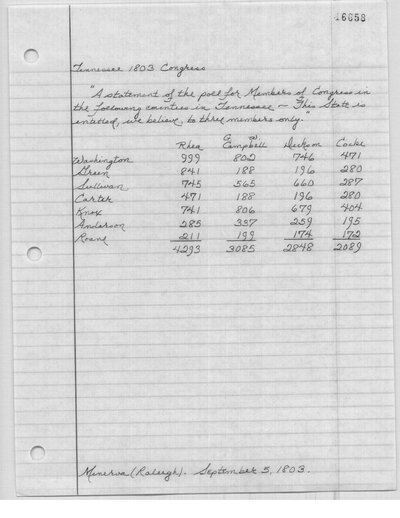 16658
Tennessee 1803 Congress
"A statement of the poll for Members of Congress in
the following counties in Tennessee - This State is
entitled, we believe, to three members only."
Rhea G. W. Campbell Dickson Cocke
Washington 999 802 746 471
Green 841 188 196 280
Sullivan 745 565 660 287
Carter 471 188 196 280
Knox 741 806 679 404
Anderson 285 337 259 195
Roane 211 199 174 172
4293 3085 2848 2089
Minerva (Raleigh). September 5, 1803.